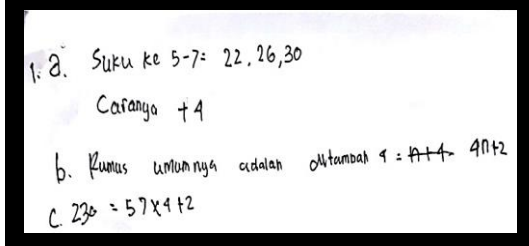 1. a. Suku ke 5-7= 22, 26, 30
Caranya +4
b. Rumus umumnya adalah ditambah 4 = n+4 4n+2
c. 230 = 57x4+2